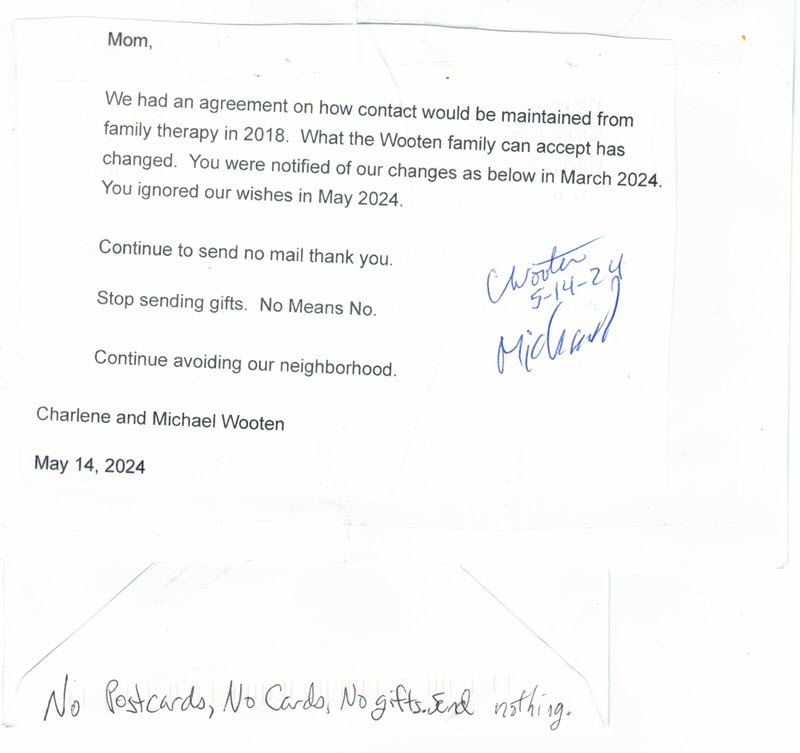 Mom,
We had an agreement on how contact would be maintained from
family therapy in 2018. What the Wooten family can accept has
changed. You were notified of our changes as below in March 2024.
You ignored our wishes in May 2024.
Continue to send no mail thank you.
Stop sending gifts. No Means No.
Continue avoiding our neighborhood.
CWooten
5-14-24
Michael
Charlene and Michael Wooten
May 14, 2024
No Postcards, No Cards, No gifts. Send nothing.